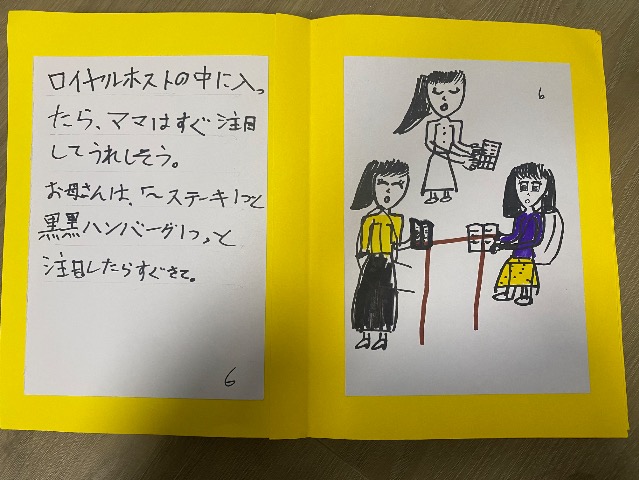 ロイヤルホストの中に入っ
たら、ママはすぐ注目
してうれしそう。
お母さんは、「～ステーキ1つと
黒黒ハンバーグ1つ」と
注目したらすぐきて。
6
6